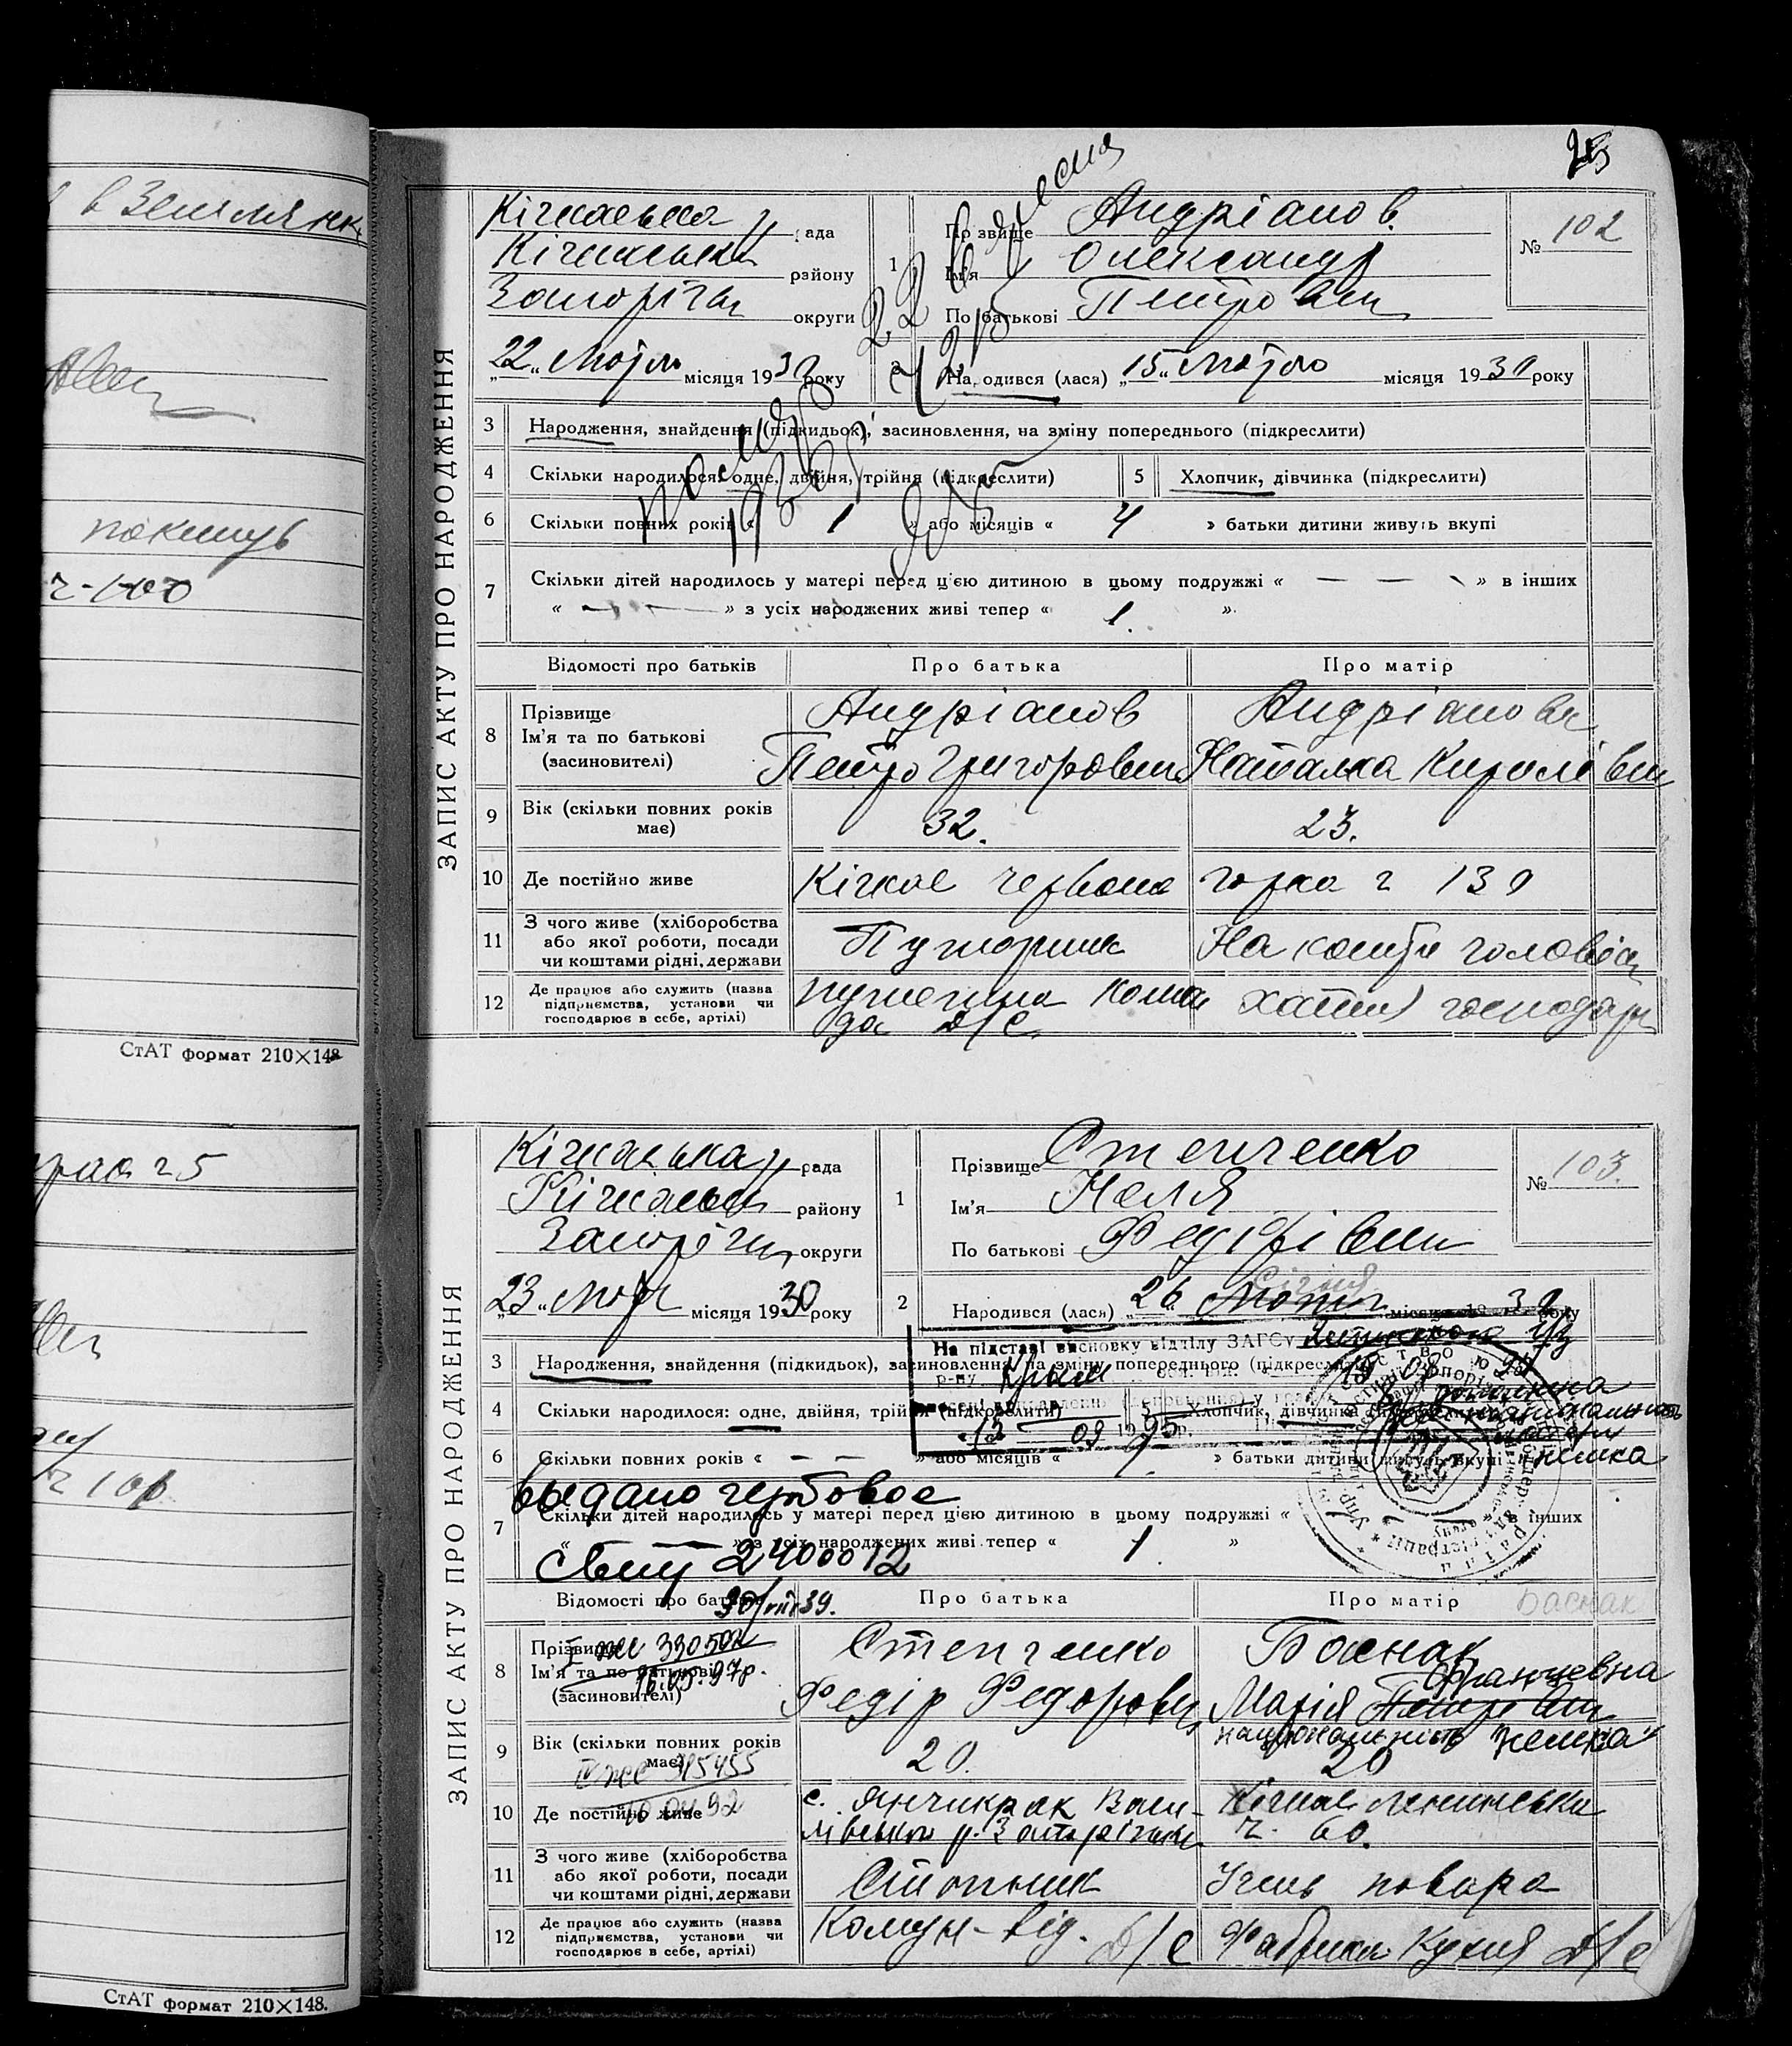 в Землянк.
покинув
ч-100
СтАТ формат 210×148
ч 5
СтАТ формат 210×148.
25
ЗАПИС АКТУ ПРО НАРОДЖЕННЯ
Кічкаська рада
Кічкаськ району
Запоріжч округи
1 Прізвище Андріанов.
Ім'я Олександр
По батькові Петрович
№ 102
„22„ Лютого місяця 1930 року
2 Народився (лася) „15„ Лютого місяця 1930 року
3 Народження, знайдення (підкидьок), засиновлення, на зміну попереднього (підкреслити)
4 Скільки народилося: одне, двійня, трійня (підкреслити)
5 Хлопчик, дівчинка (підкреслити)
6 Скільки повних років « 1 » або місяців « 4 » батьки дитини живуть вкупі
7 Скільки дітей народилось у матері перед цією дитиною в цьому подружжі « — — » в інших
« — — » з усіх народжених живі тепер « 1. »
Відомості про батьків Про батька Про матір
8 Прізвище
Ім'я та по батькові
(засиновителі)
Андріанов
Петро Григорович
Андріанова
Наталка Кирилівн
9 Вік (скільки повних років має)
32. 23.
10 Де постійно живе
Кічкас червона горка ч 130
11 З чого живе (хліборобства або якої роботи, посади чи коштами рідні, держави
На кошти голови
12 Де працює або служить (назва підприємства, установи чи господарює в себе, артілі)
команда Д/С.
хатня господар
ЗАПИС АКТУ ПРО НАРОДЖЕННЯ
Кічкаська рада
Кічкаськ району
Запоріжч округи
1 Прізвище Степченко
Ім'я Неля
По батькові Федорівни
№ 103.
„23„ Лютого місяця 1930 року
2 Народився (лася) „26 Лютого місяця 1930 року
Січня
На підставі висновку відділу ЗАГСу
р-ну Крим
13 09 1995 р.
3 Народження, знайдення (підкидьок), засиновлення, на зміну попереднього (підкреслити)
4 Скільки народилося: одне, двійня, трійня (підкреслити)
5 Хлопчик, дівчинка (підкреслити)
национальность
матери
немка
6 Скільки повних років « — — » або місяців « » батьки дитини живуть вкупі
выдано гербовое
7 Скільки дітей народилось у матері перед цією дитиною в цьому подружжі « » в інших
« » з усіх народжених живі тепер « 1. »
Свид 2400012
30/VII 39.
Відомості про батьків Про батька Про матір
Баснак
8 Прізвище
Ім'я та по батькові
(засиновителі)
16.09.97р.
Степченко
Федір Федорович
Баснак
Францевна
Марія Петрівн
национальность "немка"
9 Вік (скільки повних років має)
20. 20
10 Де постійно живе
с. Янчикрак Васи-
лівського р. Запоріжжя
Кічкас Ленинська
ч. 60.
11 З чого живе (хліборобства або якої роботи, посади чи коштами рідні, держави
Учень повара
12 Де працює або служить (назва підприємства, установи чи господарює в себе, артілі)
Комун-від. Д/С
Фабрика Кухня Д/С